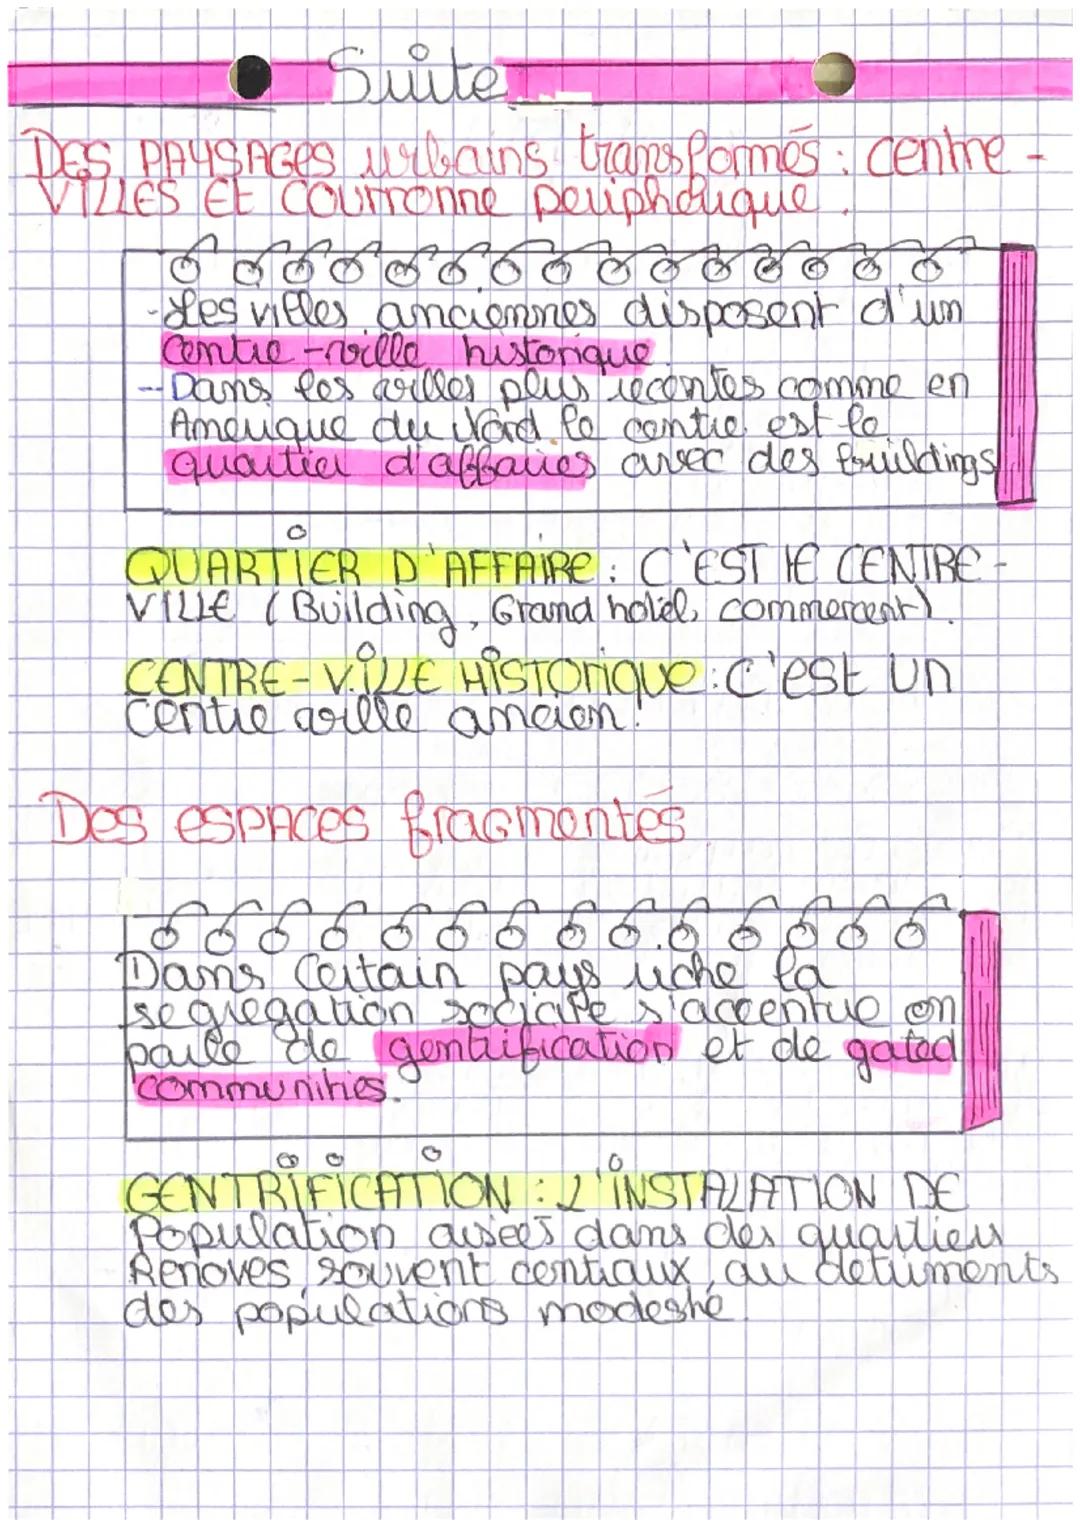 Suite
DES PAYSAGES urbains transformés : centre-
VILLES Et COURRONNE peripherique.
-Les villes anciennes disposent d'un
Centre-ville historique
-Dans les villes plus recentes comme en
Amerique du Nord le centre est le
quartier d'affaires avec des buildings
QUARTIER D'AFFAIRE : C'EST LE CENTRE-
VILLE (Building, Grand hotel, commercent).
CENTRE-VILLE HISTORIQUE : C'est UN
Centre ville ancien.
Des ESPACES fRAGmentés
Dans Certain pays riche la
segregation sociale s'accentue on
parle de gentrification et de gated
communities.
GENTRIFICATION : L'INSTALATION DE
Population aisées dans des quartiers
Renoves, souvent centraux, au detriments
des populations modeste.